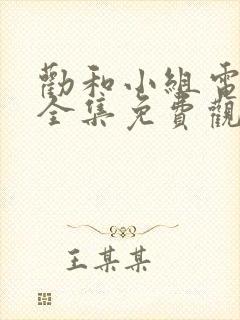 勸和小組電
全集免費觀
王某某